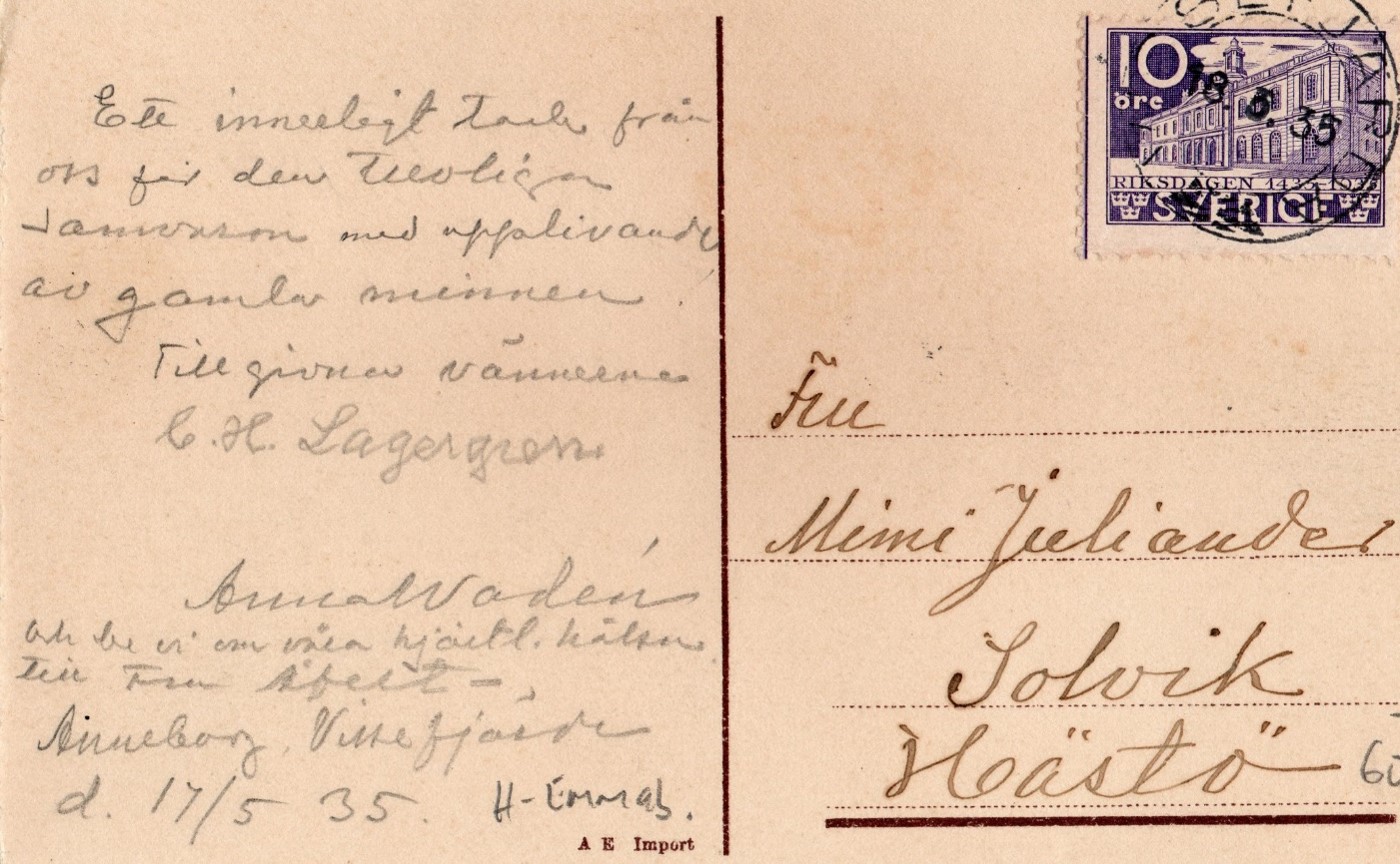 Ett innerligt tack från
oss för den trevliga
samvaron med upplivande
av gamla minnen.
Tillgivna vännerna
C. H. Lagergren
Anna Wadén
och be vi om våra hjärtl. hälsn.
till Fru
Anneborg, Vissefjärda
d. 17/5 35.
H-Emmab.
A E Import
10
öre
18. 5. 35
RIKSDAGEN 1435-1935
SVERIGE
Fru
Mimi Juliander
Solvik
Hästö